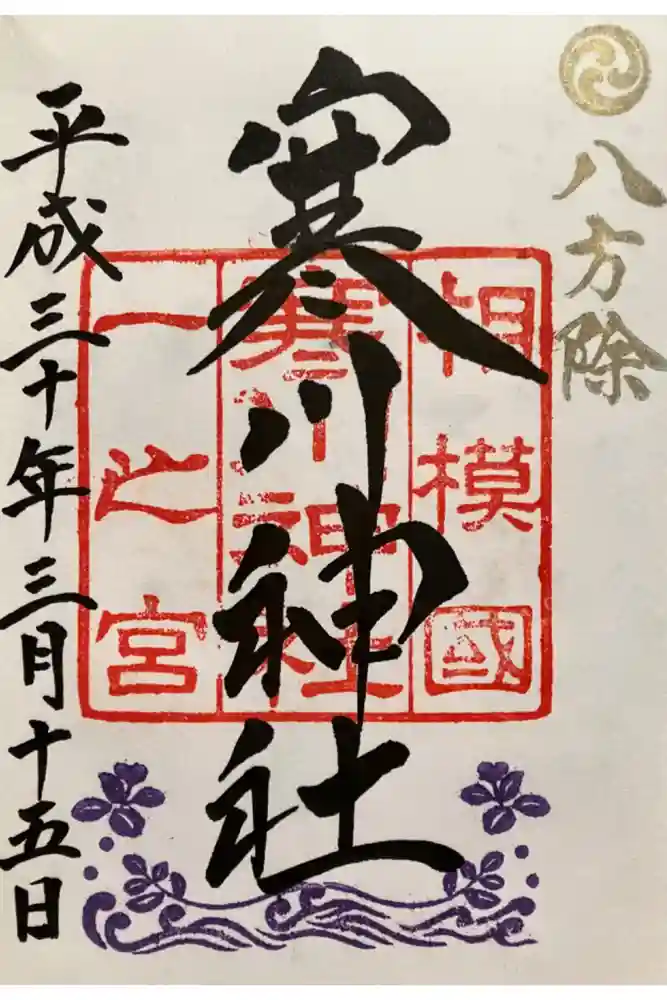 八方除
寒川神社
相模國
寒川神社
一之宮
平成三十年三月十五日